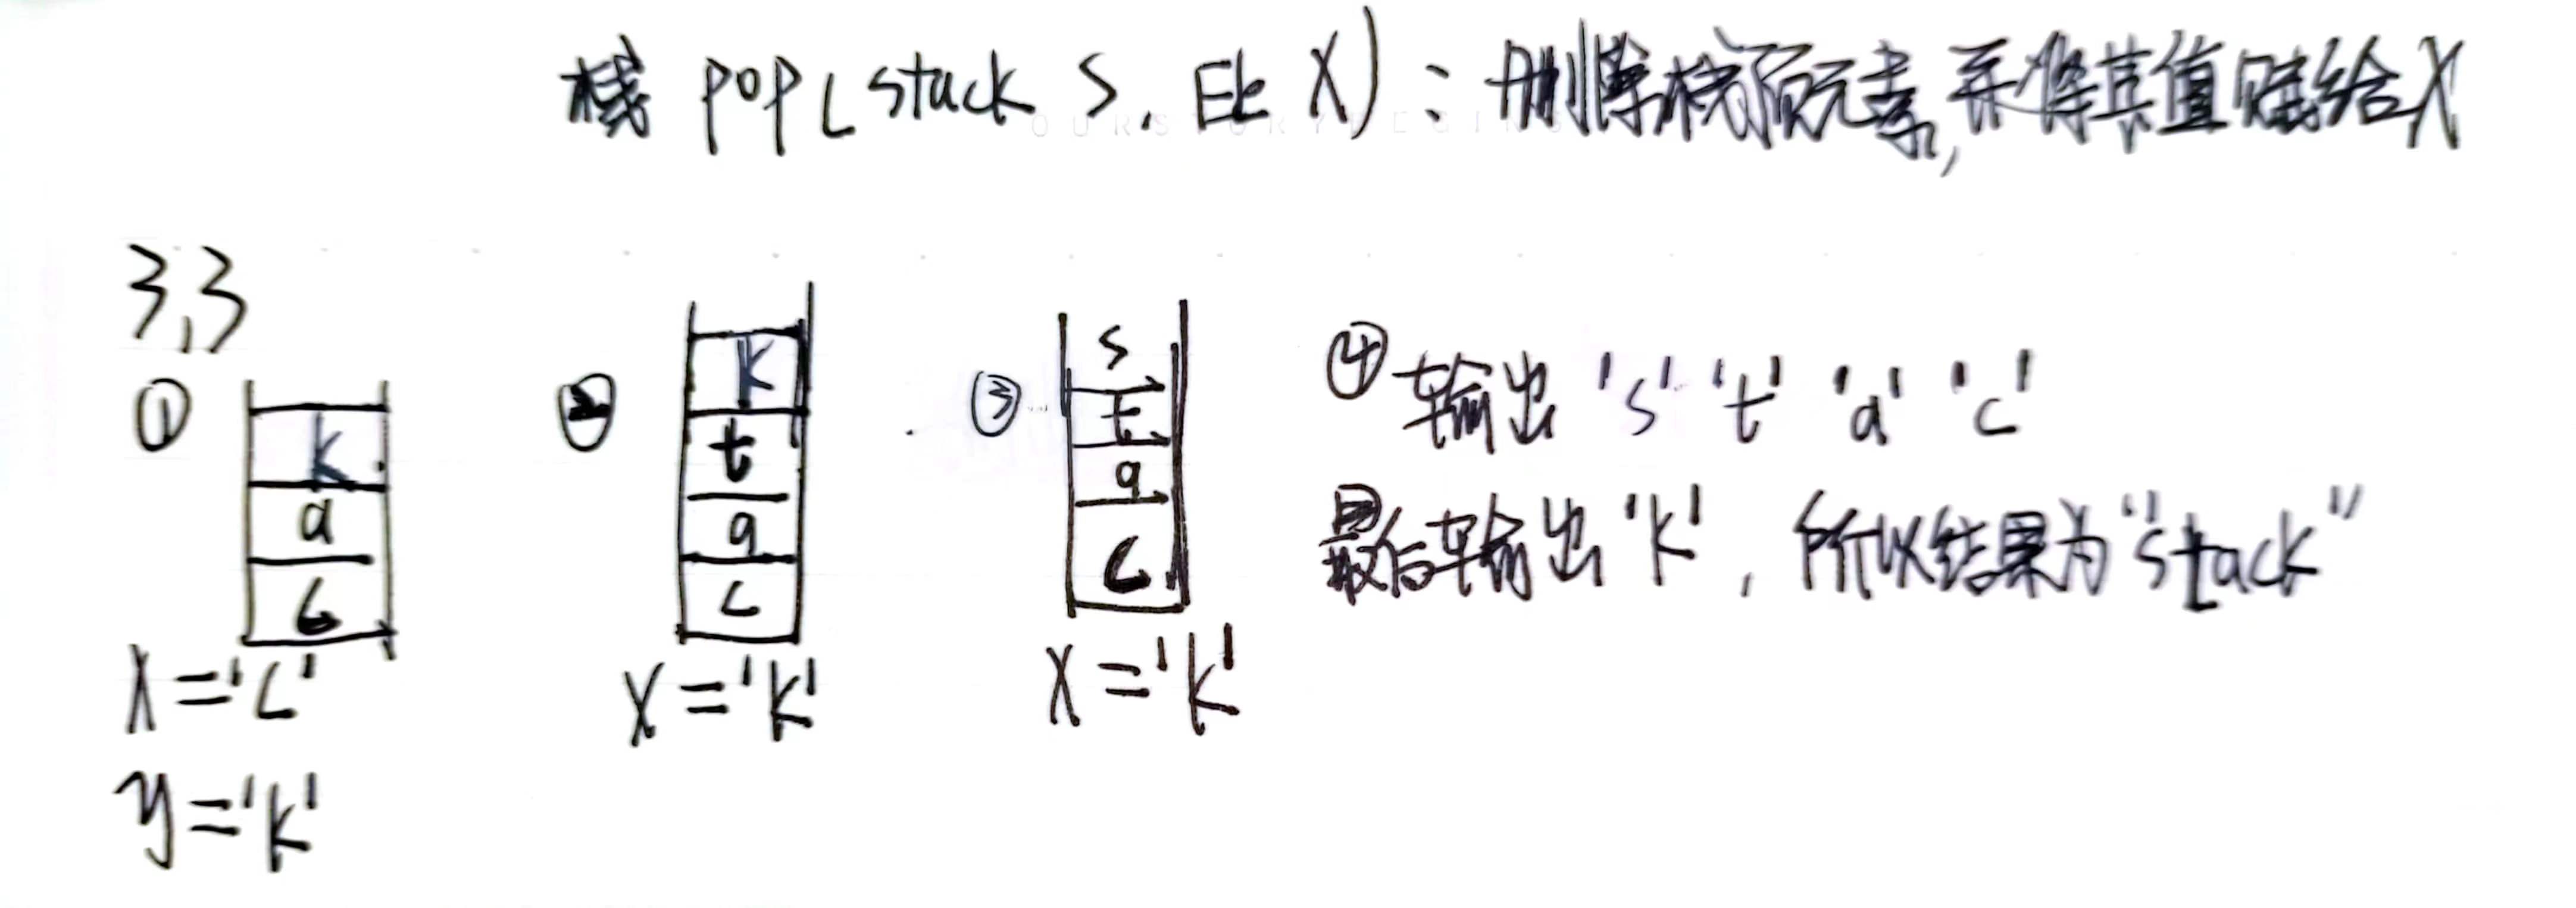 栈 pop(stack S, Ele X)：删除栈顶元素,并将其值赋给X
3,3
① k a c
X='c'
y='k'
② k t a c
X='k'
③ s t a c
X='k'
④ 输出 's' 't' 'a' 'c'
最后输出'k', 所以结果为"stack"